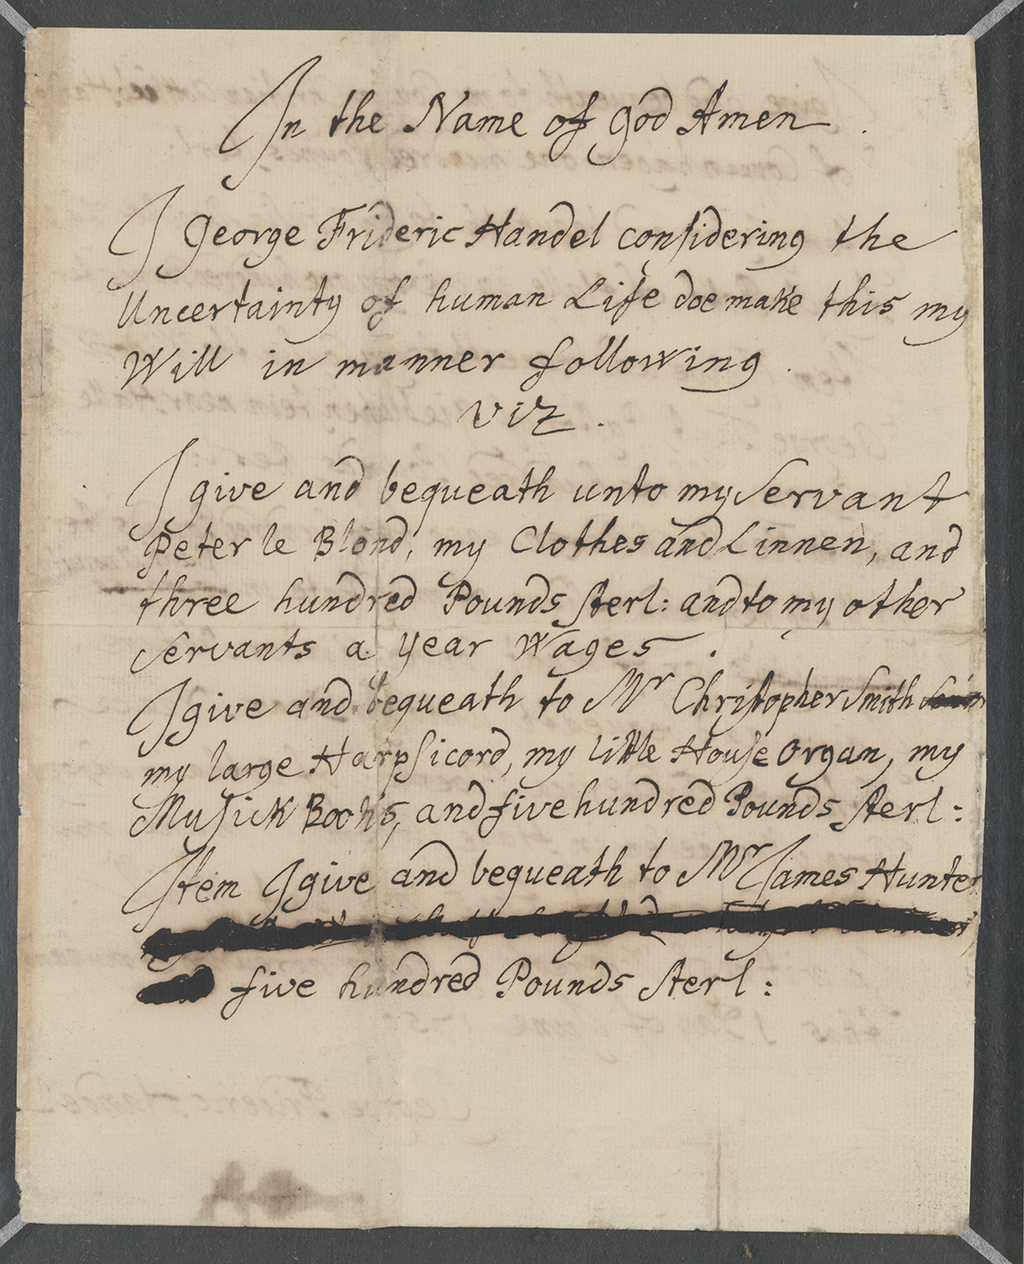 In the Name of God Amen.
I George Frideric Handel considering the
Uncertainty of human Life doe make this my
Will in manner following
viz.
I give and bequeath unto my Servant
Peter le Blond, my Clothes and Linnen, and
three hundred Pounds sterl: and to my other
servants a year Wages.
I give and bequeath to Mr Christopher Smith
my large Harpsicord, my little House Organ, my
Musick Books, and five hundred Pounds sterl:
Item I give and bequeath to Mr James Hunter
five hundred Pounds sterl: